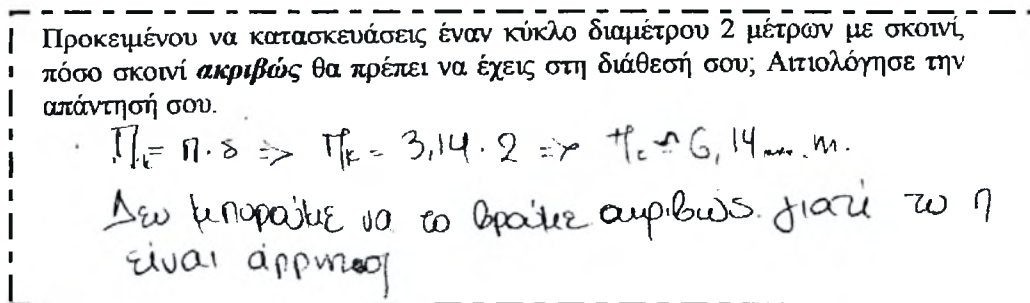 Προκειμένου να κατασκευάσεις έναν κύκλο διαμέτρου 2 μέτρων με σκοινί,
πόσο σκοινί ακριβώς θα πρέπει να έχεις στη διάθεσή σου; Αιτιολόγησε την
απάντησή σου.
Πκ = π · δ => Πκ = 3,14 · 2 => Πκ ≃ 6,14.... m.
Δεν μπορούμε να το βρούμε ακριβώς γιατί το π
είναι άρρητος